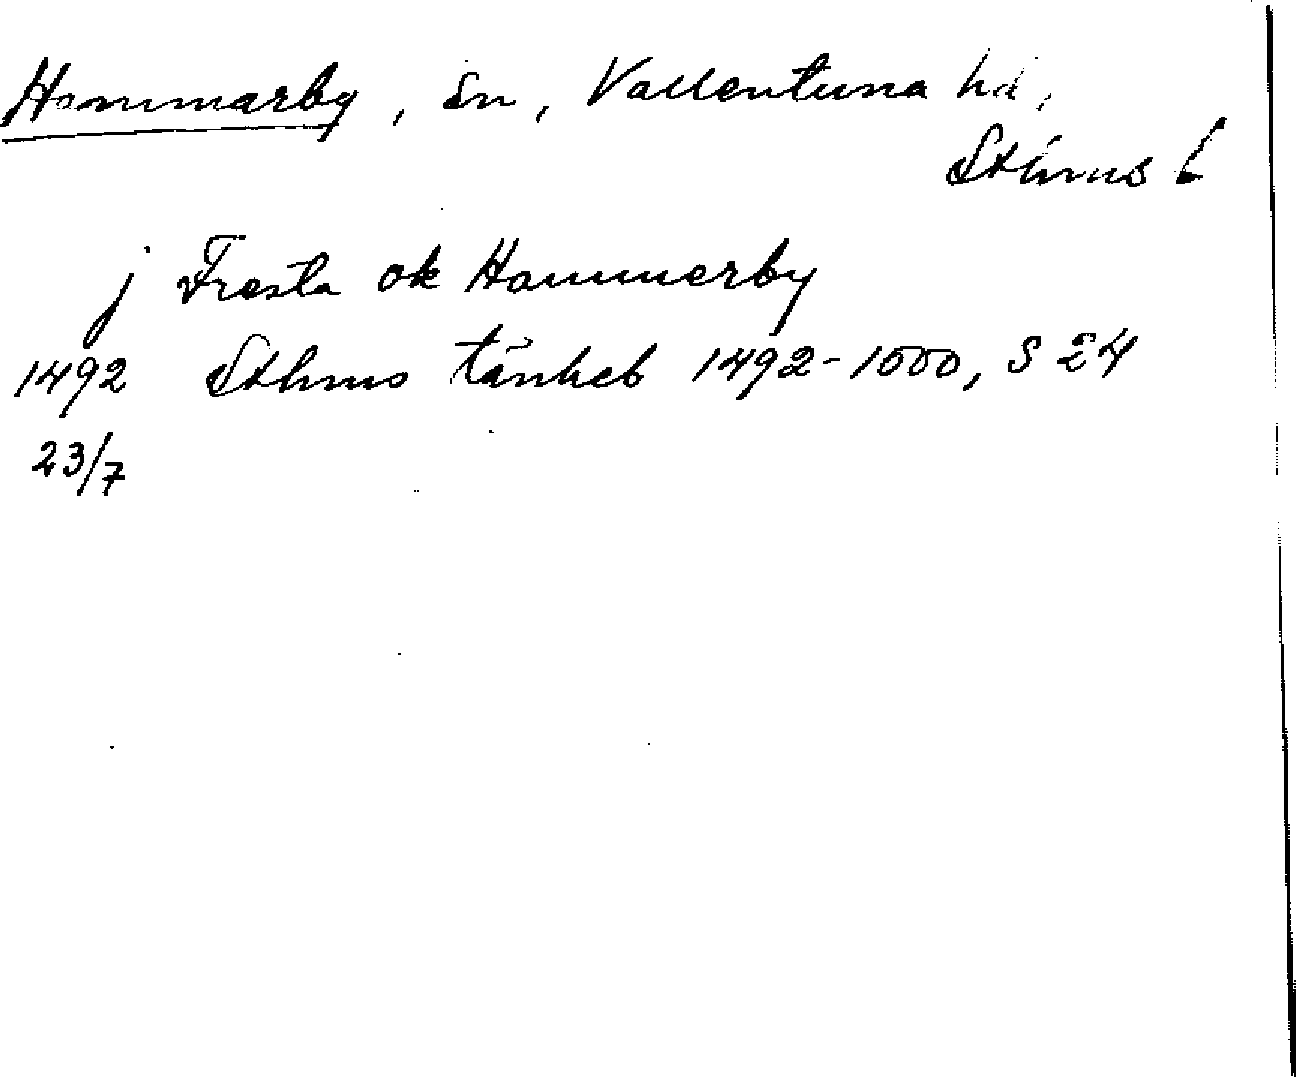 Hammarby, sn, Vallentuna hd,
Sthms l
j Fresta ok Hammerby
1492 Sthms tänkeb 1492-1500, S 24
23/7